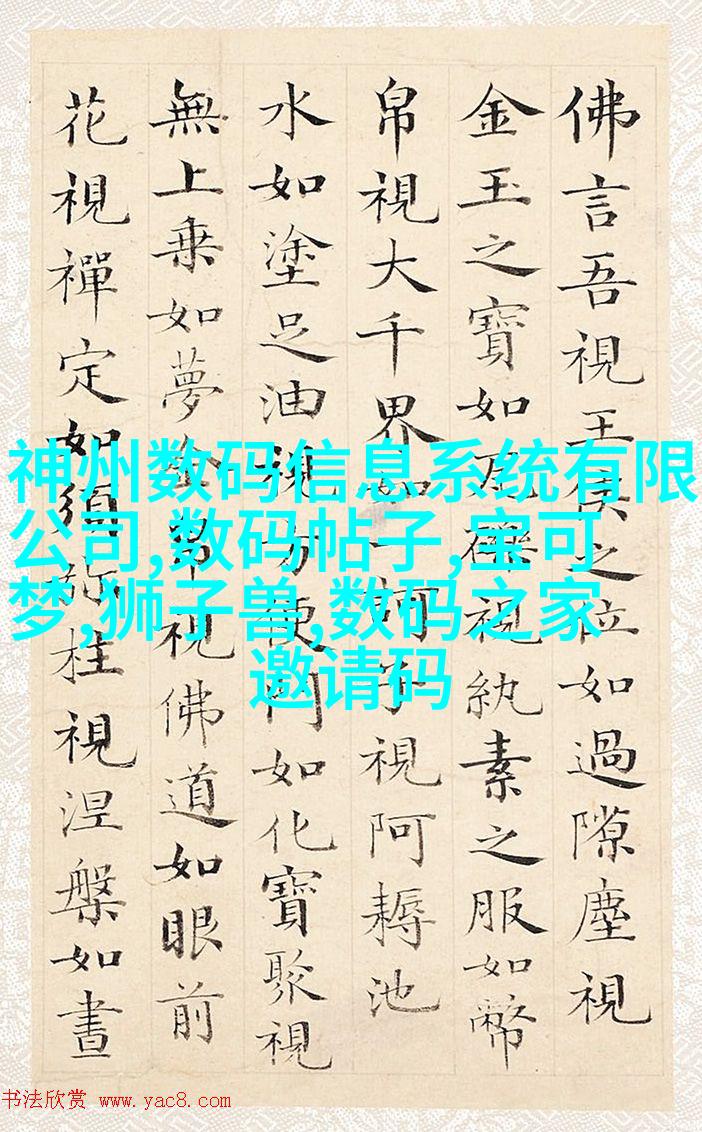 佛言吾視王侯之位如過隙塵視
金玉之寶如瓦礫視紈素之服如幣
帛視大千界如一訶子視阿耨池
水如塗足油視方便門如化寶聚視
無上乗如夢金帛視佛道如眼前
花視禪定如須弥柱視涅槃如晝
神州数码信息系统有限
公司,数码帖子,宝可
梦,狮子兽,数码之家
邀请码
书法欣赏 www.yac8.com